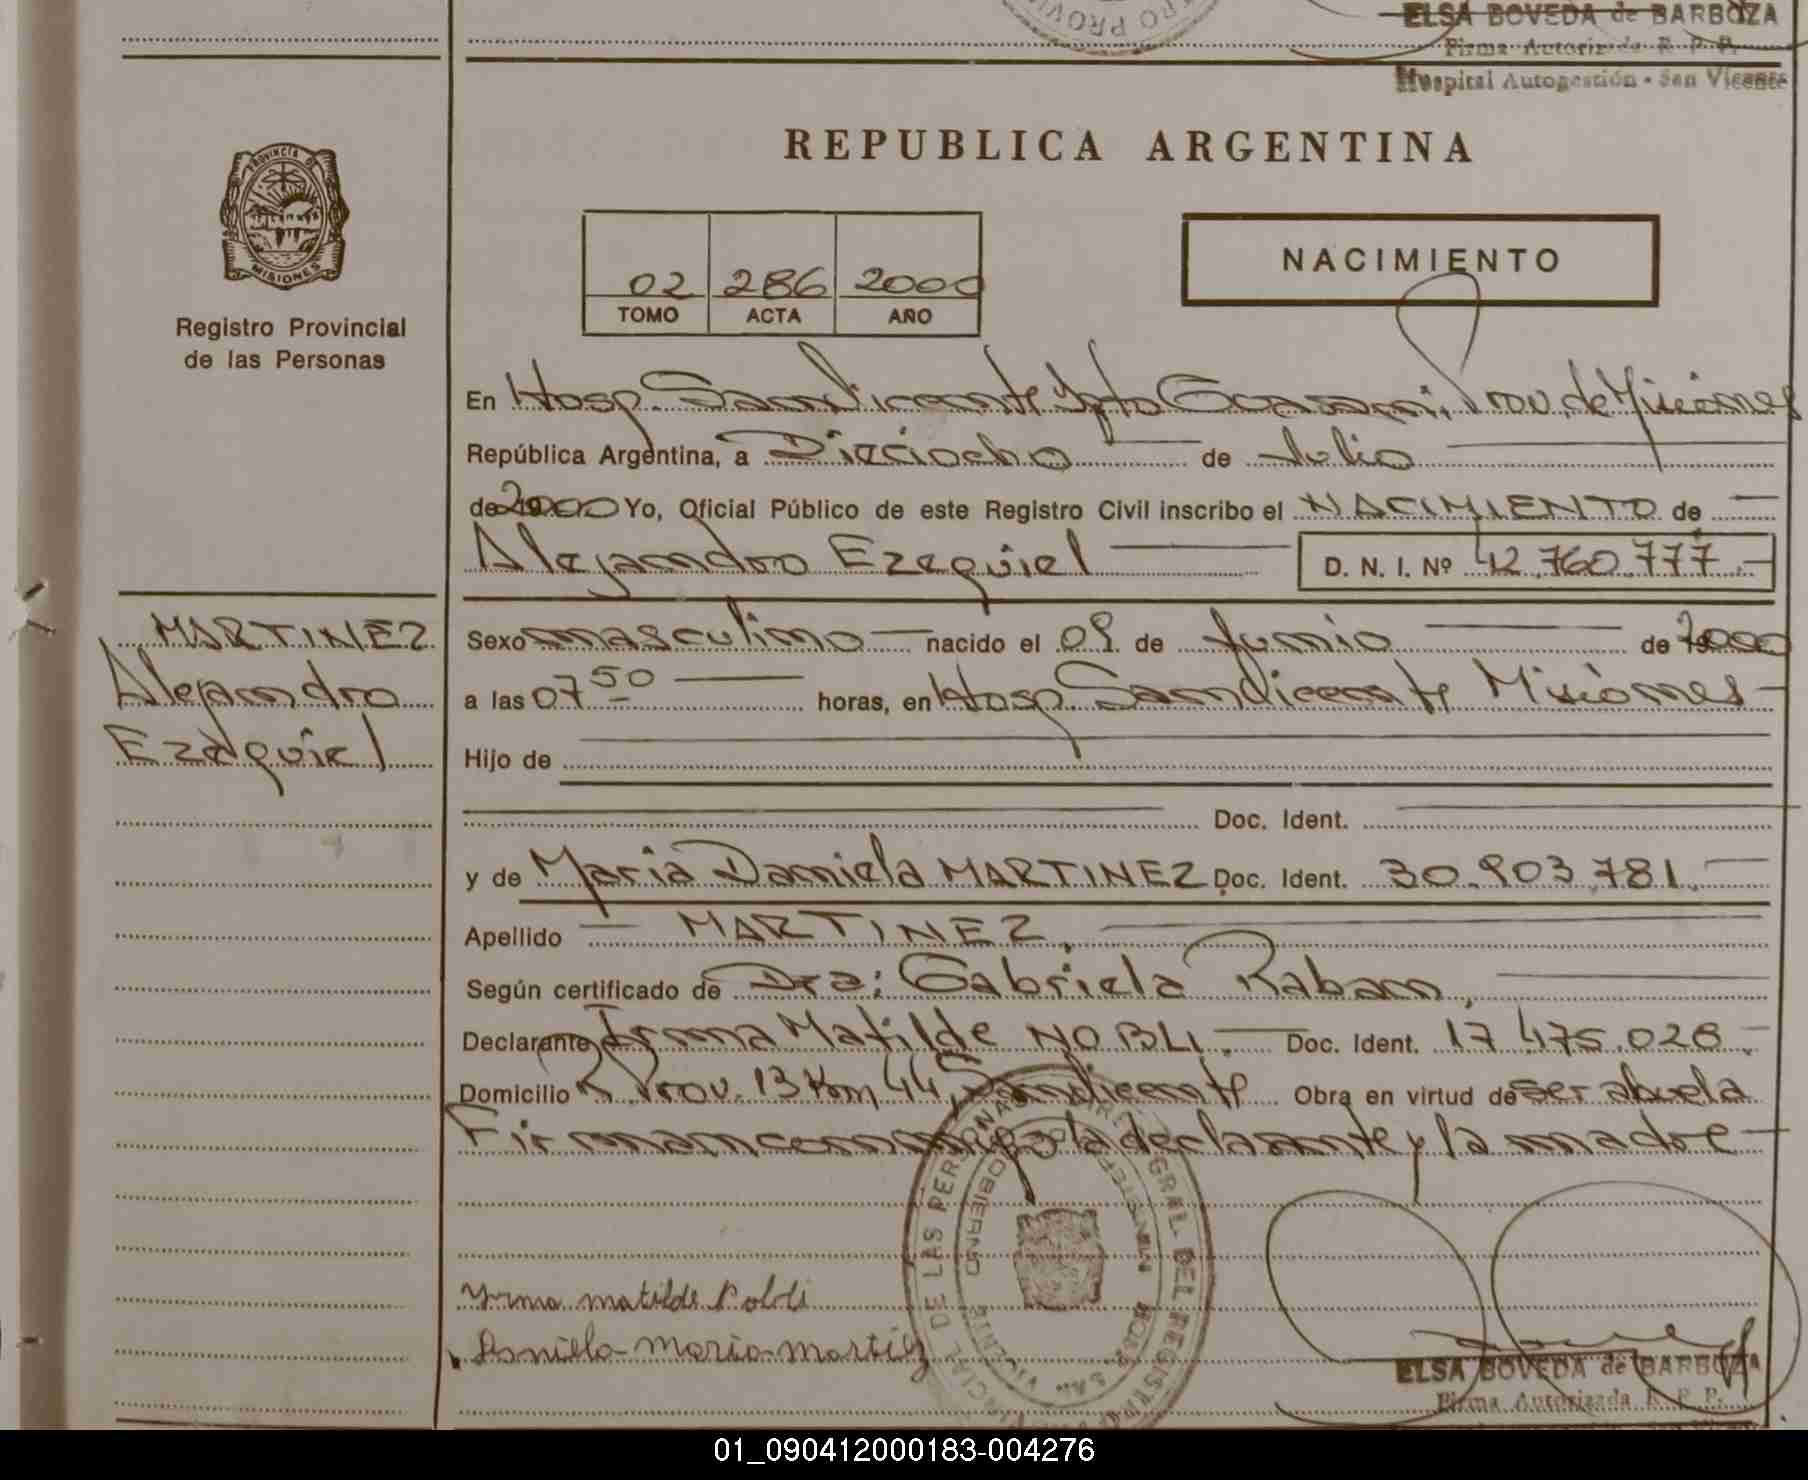 ELSA BOVEDA de BARBOZA
Firma Autorizada R. P. P.
Hospital Autogestión - San Vicente
PROVINCIA DE
MISIONES
Registro Provincial
de las Personas
REPUBLICA ARGENTINA
02 286 2000
TOMO ACTA AÑO
NACIMIENTO
En Hosp. San Vicente Dpto Guaraní, Prov. de Misiones
República Argentina, a Dieciocho de Julio
de 2000 Yo, Oficial Público de este Registro Civil inscribo el NACIMIENTO de
Alejandro Ezequiel D. N. I. Nº 42.760.777.-
MARTINEZ
Alejandro
Ezequiel
Sexo masculino nacido el 09 de Junio de 2000
a las 07 50 horas, en Hosp. San Vicente Misiones
Hijo de
Doc. Ident.
y de Maria Daniela MARTINEZ Doc. Ident. 30.903.781.
Apellido MARTINEZ.
Según certificado de Dra: Gabriela Raban,
Declarante Irma Matilde NOBLI. Doc. Ident. 17.475.028.
Domicilio R. Prov. 13 Km 44 San Vicente Obra en virtud de ser abuela
Firman conmigo la declarante y la madre
Yrma matilde
Daniela maria
ELSA BOVEDA de BARBOZA
Firma Autorizada R. P. P.
01_090412000183-004276